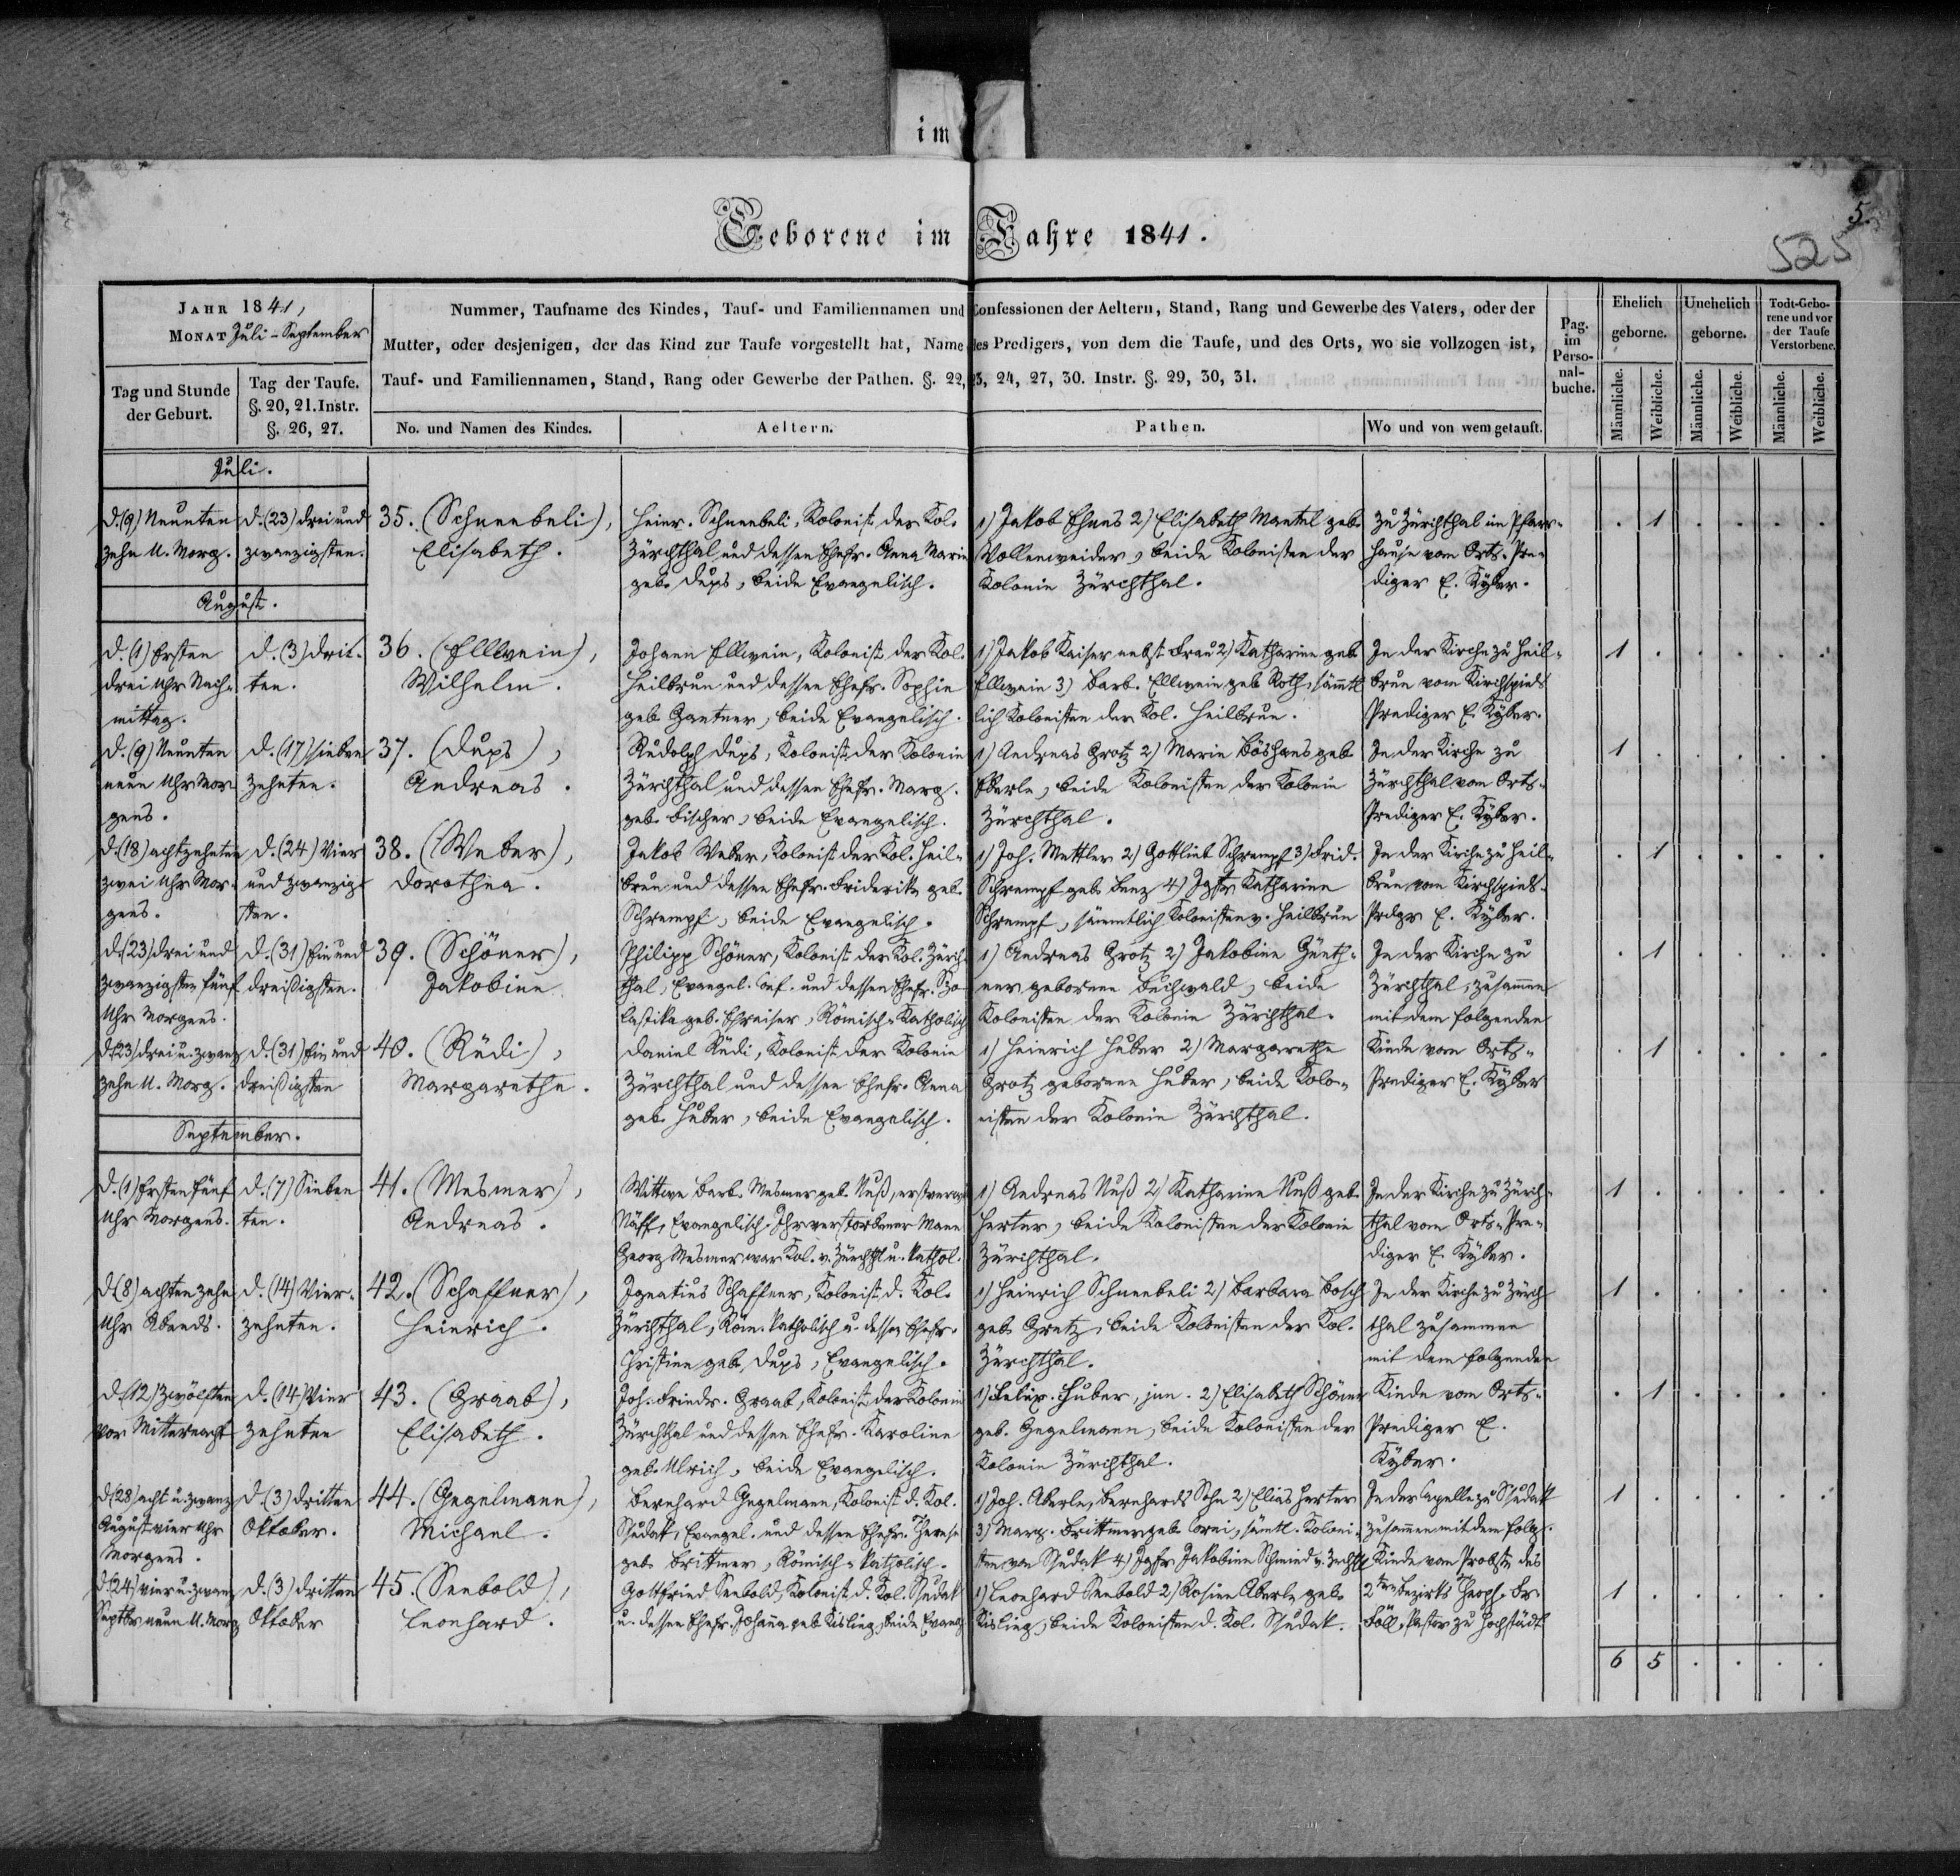 im
Geborene im Jahre 1841.
5.
525
JAHR 1841,
MONAT Juli - September
Tag und Stunde der Geburt.
Tag der Taufe. §. 20, 21. Instr. §. 26, 27.
Nummer, Taufname des Kindes, Tauf- und Familiennamen und Confessionen der Aeltern, Stand, Rang und Gewerbe des Vaters, oder der
Mutter, oder desjenigen, der das Kind zur Taufe vorgestellt hat, Name des Predigers, von dem die Taufe, und des Orts, wo sie vollzogen ist,
Tauf- und Familiennamen, Stand, Rang oder Gewerbe der Pathen. §. 22, 23, 24, 27, 30. Instr. §. 29, 30, 31.
No. und Namen des Kindes.
Aeltern.
Pathen.
Wo und von wem getauft.
Pag. im Perso-nal-buche.
Ehelich geborne.
Unehelich geborne.
Todt-Gebo-rene und vor der Taufe Verstorbene.
Männliche. Weibliche. Männliche. Weibliche. Männliche. Weibliche.
Juli.
d. (9) Neunten
zehn U. Morg.
d. (23) drei und
zwanzigsten.
35. (Schneebeli),
Elisabeth.
Heinr. Schneebeli, Kolonist der Kol.
Zürchthal und dessen Ehefr. Anna Marie
geb. Dups, beide Evangelisch.
1) Jakob 2) Elisabeth Mantel geb.
Vollenweider, beide Kolonisten der
Kolonie Zürchthal.
Zu Zürchthal im Pfarr-
hause vom Orts-Pre-
diger E. Kyber.
. 1 . . . .
August.
d. (1) Ersten
drei Uhr Nach-
mittag.
d. (3) drit-
ten.
36. (Ellwein),
Wilhelm.
Johann Ellwein, Kolonist der Kol.
Heilbrun und dessen Ehefr. Sophie
geb. Gantner, beide Evangelisch.
1) Jakob Kaiser nebst Frau 2) Katharine geb.
Ellwein 3) Barb. Ellwein geb. Roth, sämtl
lich Kolonisten der Kol. Heilbrun.
In der Kirche zu Heil-
brun vom Kirchspiels
Prediger E. Kyber.
1 . . . . .
d. (9) Neunten
neun Uhr Mor
gens.
d. (17) sieben
zehnten.
37. (Dups),
Andreas.
Rudolph Dups, Kolonist der Kolonie
Zürchthal und dessen Ehefr. Marg.
geb. Fischer, beide Evangelisch.
1) Andreas Grotz 2) Marie Böshans geb.
Eberle, beide Kolonisten der Kolonie
Zürchthal.
In der Kirche zu
Zürchthal vom Orts-
Prediger E. Kyber.
1 . . . . .
d. (18) achtzehnten
zwei Uhr Mor-
gens.
d. (24) Vier
und zwanzig-
sten.
38. (Weber),
Dorothea.
Jakob Weber, Kolonist der Kol. Heil-
brun und dessen Ehefr. Friderike geb.
Schrempf, beide Evangelisch.
1) Joh. Mettler 2) Gottlieb Schrempf 3) Frid.
Schrempf geb. Benz 4) Jgfr Katharine
Schrempf, sämmtlich Kolonisten v. Heilbrun
In der Kirche zu Heil-
brun vom Kirchspiels-
Predgr E. Kyber.
. 1 . . . .
d. (23) drei und
zwanzigsten fünf
Uhr Morgens.
d. (31) Ein und
dreißigsten.
39. (Schöner),
Jakobine
Philipp Schöner, Kolonist der Kol. Zürch-
thal, Evangel. Conf. und dessen Ehefr. Scho
lastika geb. Schreiser, Römisch-Katholisch
1) Andreas Grotz 2) Jakobine Günth-
ner geborene Buchwald, beide
Kolonisten der Kolonie Zürchthal.
In der Kirche zu
Zürchthal, zusammen
mit dem folgenden
. 1 . . . .
d. (23) drei u. zwanz
zehn U. Morg.
d. (31) Ein und
dreißigsten
40. (Rüdi),
Margarethe.
Daniel Rüdi, Kolonist der Kolonie
Zürchthal und dessen Ehefr. Anna
geb. Huber, beide Evangelisch.
1) Heinrich Huber 2) Margarethe
Grotz geborene Huber, beide Kolo-
nisten der Kolonie Zürchthal.
Kinde vom Orts-
Prediger E. Kyber
. 1 . . . .
September.
d. (1) Ersten fünf
Uhr Morgens.
d. (7) Sieben
ten.
41. (Mesmer),
Andreas.
Wittwe Barb. Mesmer geb. Nuß,
Näff, Evangelisch. Ihr verstorbener Mann
Georg Mesmer war Kol. v. Zürchthl u. Kathol.
1) Andreas Nuß 2) Katharine Nuß geb.
Herter, beide Kolonisten der Kolonie
Zürchthal.
In der Kirche zu Zürch-
thal vom Orts-Pre-
diger E. Kyber.
1 . . . . .
d. (8) achten zehn
Uhr Abends.
d. (14) Vier-
zehnten.
42. (Schaffner),
Heinrich.
Ignatius Schaffner, Kolonist d. Kol.
Zürchthal, Röm. Katholisch u. dessen Ehefr.
Christine geb. Dups, Evangelisch.
1) Heinrich Schneebeli 2) Barbara Bosch
geb. Gretz, beide Kolonisten der Kol.
Zürchthal.
In der Kirche zu Zürch
thal zusammen
mit dem folgenden
1 . . . . .
d. (12) zwölften
vor Mitternacht
d. (14) Vier
zehnten
43. (Graab),
Elisabeth.
Joh. Friedr. Graab, Kolonist der Kolonie
Zürchthal und dessen Ehefr. Karoline
geb. Ulrich, beide Evangelisch.
1) Felix Huber, jun. 2) Elisabeth Schöner
geb. Gegelmann, beide Kolonisten der
Kolonie Zürchthal.
Kinde vom Orts-
Prediger E.
Kyber.
. 1 . . . .
d. (28) acht u. zwanz
August vier Uhr
Morgens.
d. (3) dritten
Oktober.
44. (Gegelmann),
Michael.
Bernhard Gegelmann, Kolonist d. Kol.
Sudak, Evangel. und dessen Ehefr. Therese
geb. Brittner, Römisch-Katholisch.
1) Joh. Aberle, Bernhards Sohn 2) Elias Herter
3) Marg. Brittner geb. Corni, sämtl. Koloni-
sten von Sudak 4) Jgfr Jakobine Schmied v. Zrchthl
In der Capelle zu Sudak
zusammen mit dem folg.
Kinde vom Probste des
1 . . . . .
d. (24) vier u. zwanz
Septbr neun U. Morg
d. (3) dritten
Oktober
45. (Seebold),
Leonhard.
Gottfried Seebold, Kolonist d. Kol. Sudak
u. dessen Ehefr. Johanna geb. Kisling, beide Evang
1) Leonhard Seebold 2) Rosine Aberle geb.
Kisling, beide Kolonisten d. Kol. Sudak.
2ten Bezirks Fr.
Föll, Pastor zu Hochstädt
1 . . . . .
6 5 . . . .